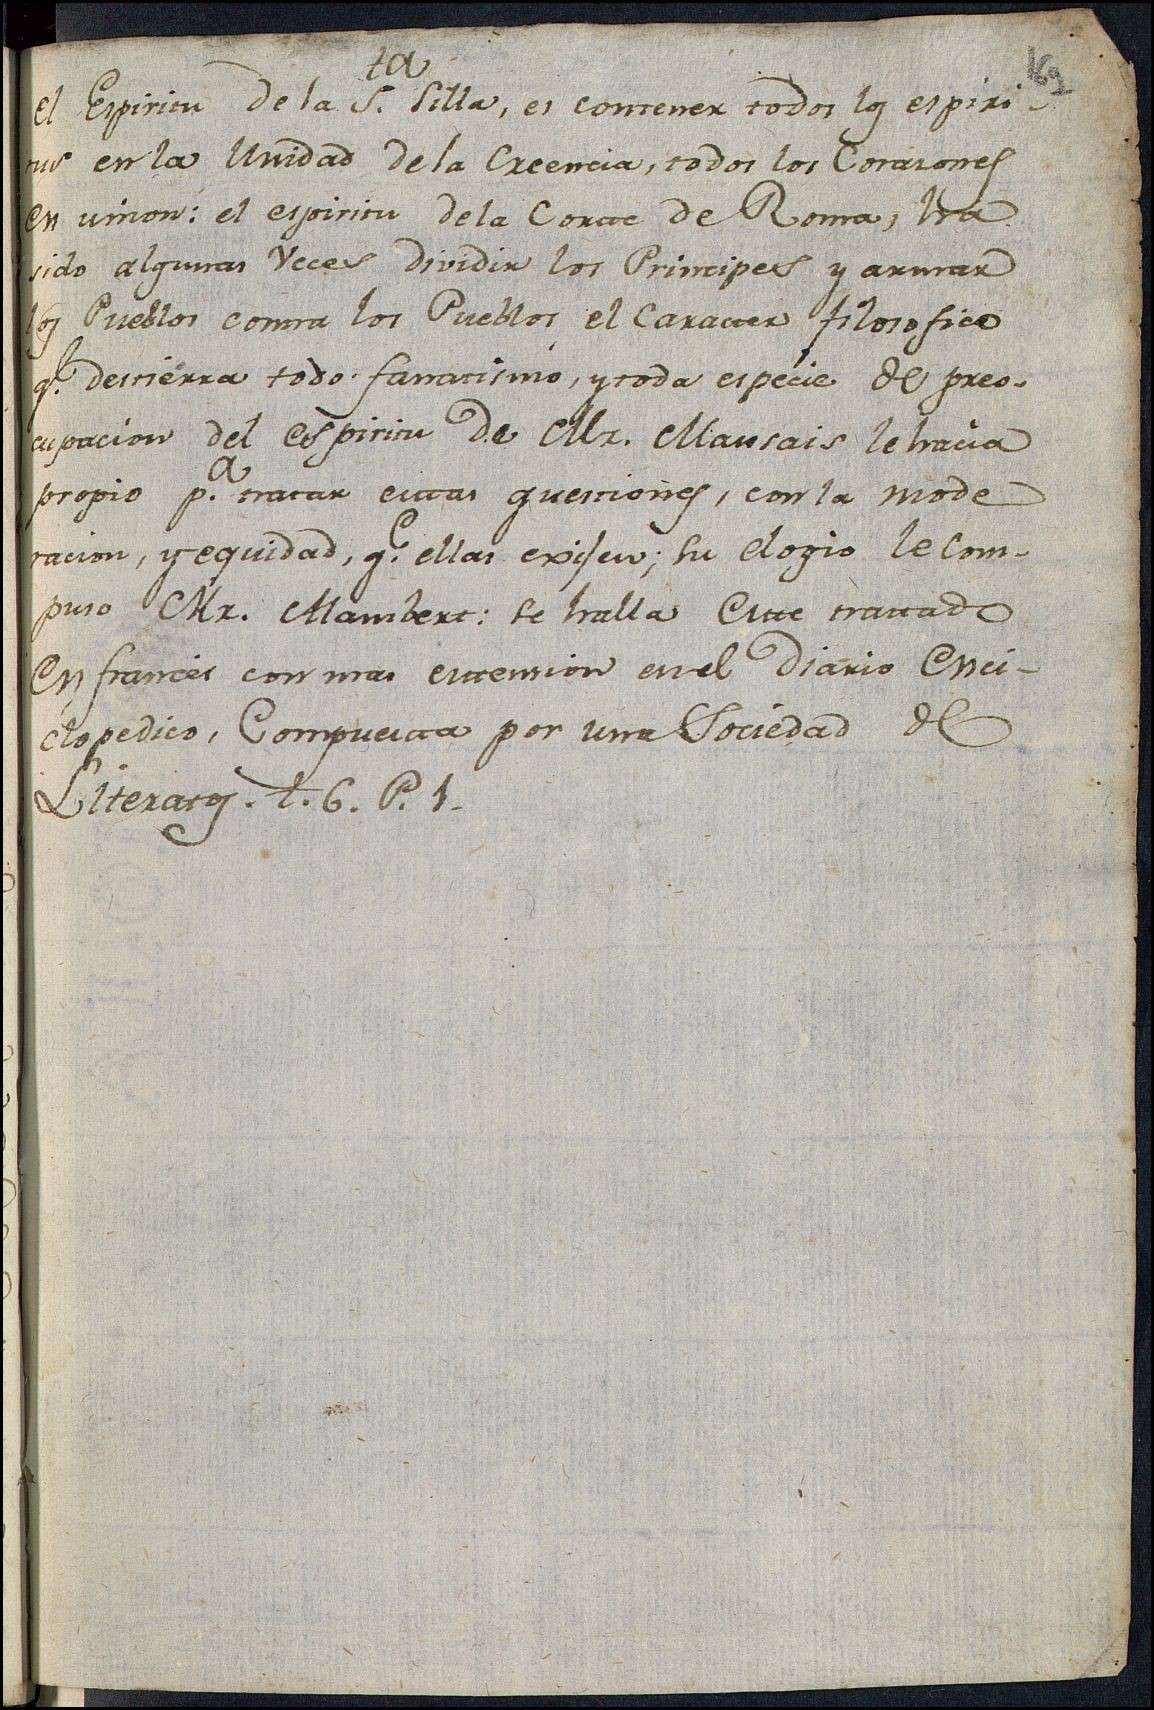 169
el Espiritu de la S.ta Silla, es contener todos los espiri-
tus en la Unidad de la Creencia, todos los Corazones
en union: el espiritu de la Corte de Roma, ha
sido algunas Veces dividir los Principes y armar
los Pueblos contra los Pueblos, el Caracter filosofico
q.e destiérra todo fanatismo, y toda espécie de preo-
cupacion del espiritu de Mr. Marsais le hacia
propio p.a tratar estas questiones, con la mode
racion, y equidad, q.e ellas exijen; su elogio le com-
puso Mr. Alambert: se halla este tratado
en francés con mas extension en el Diario Enci-
clopedico, Compuesta por una Sociedad de
Literatos. t. 6. P. 1.